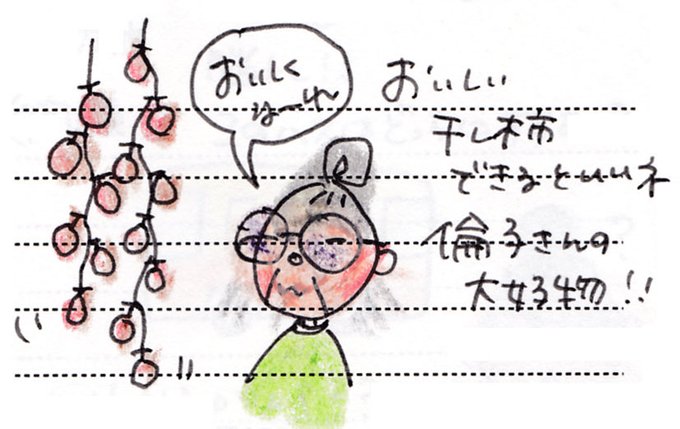 おいしく
なーれ
おいしい
干し柿
できるといいネ
倫子さんの
大好物!!